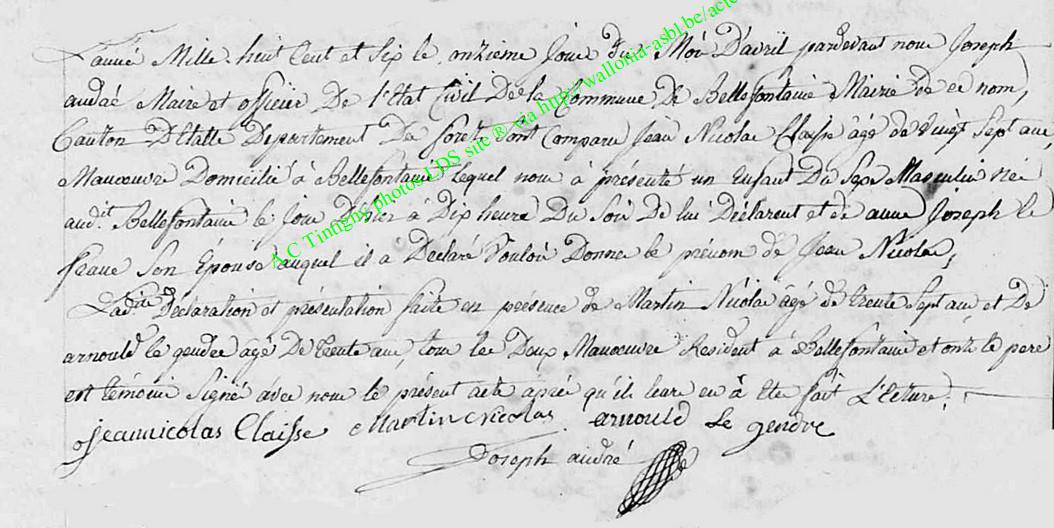 L'année Mille huit Cent et Six le onzieme Jour du Moi D'avril pardevant nous Joseph
andré Maire et officier De l'Etat Civil De la Commune de Bellefontaine Mairie de ce nom,
Canton D'Etalle Departement De foret Sont Comparu Jean Nicolas Claisse âgé de vingt Sept ans,
Manoeuvre Domicilié à Bellefontaine Lequel nous à présenté un Enfant Du Sexe Masculin né
audit Bellefontaine le Jour D'hier à Dix heure Du Soir De lui Déclarent et de anne Joseph le
Son Épouse auquel il à Déclaré Vouloir Donner le prénom de Jean Nicolas,
Ladite Déclaration et présentation faite en presence de Martin Nicolas âgé de trente Sept ans, et De
arnould le gendre âgé De trente ans, tous les Deux Manoeuvre Resident à Bellefontaine et ont le pere
et témoins Signé avec nous le présent acte après qu'il leurs en à Eté fait L'Ecture.
Jeannicolas Claisse Martin Nicolas arnould Le gendre
Joseph andré
A.C Tintigny photos LDS site ® via http://wallonia-asbl.be/acte